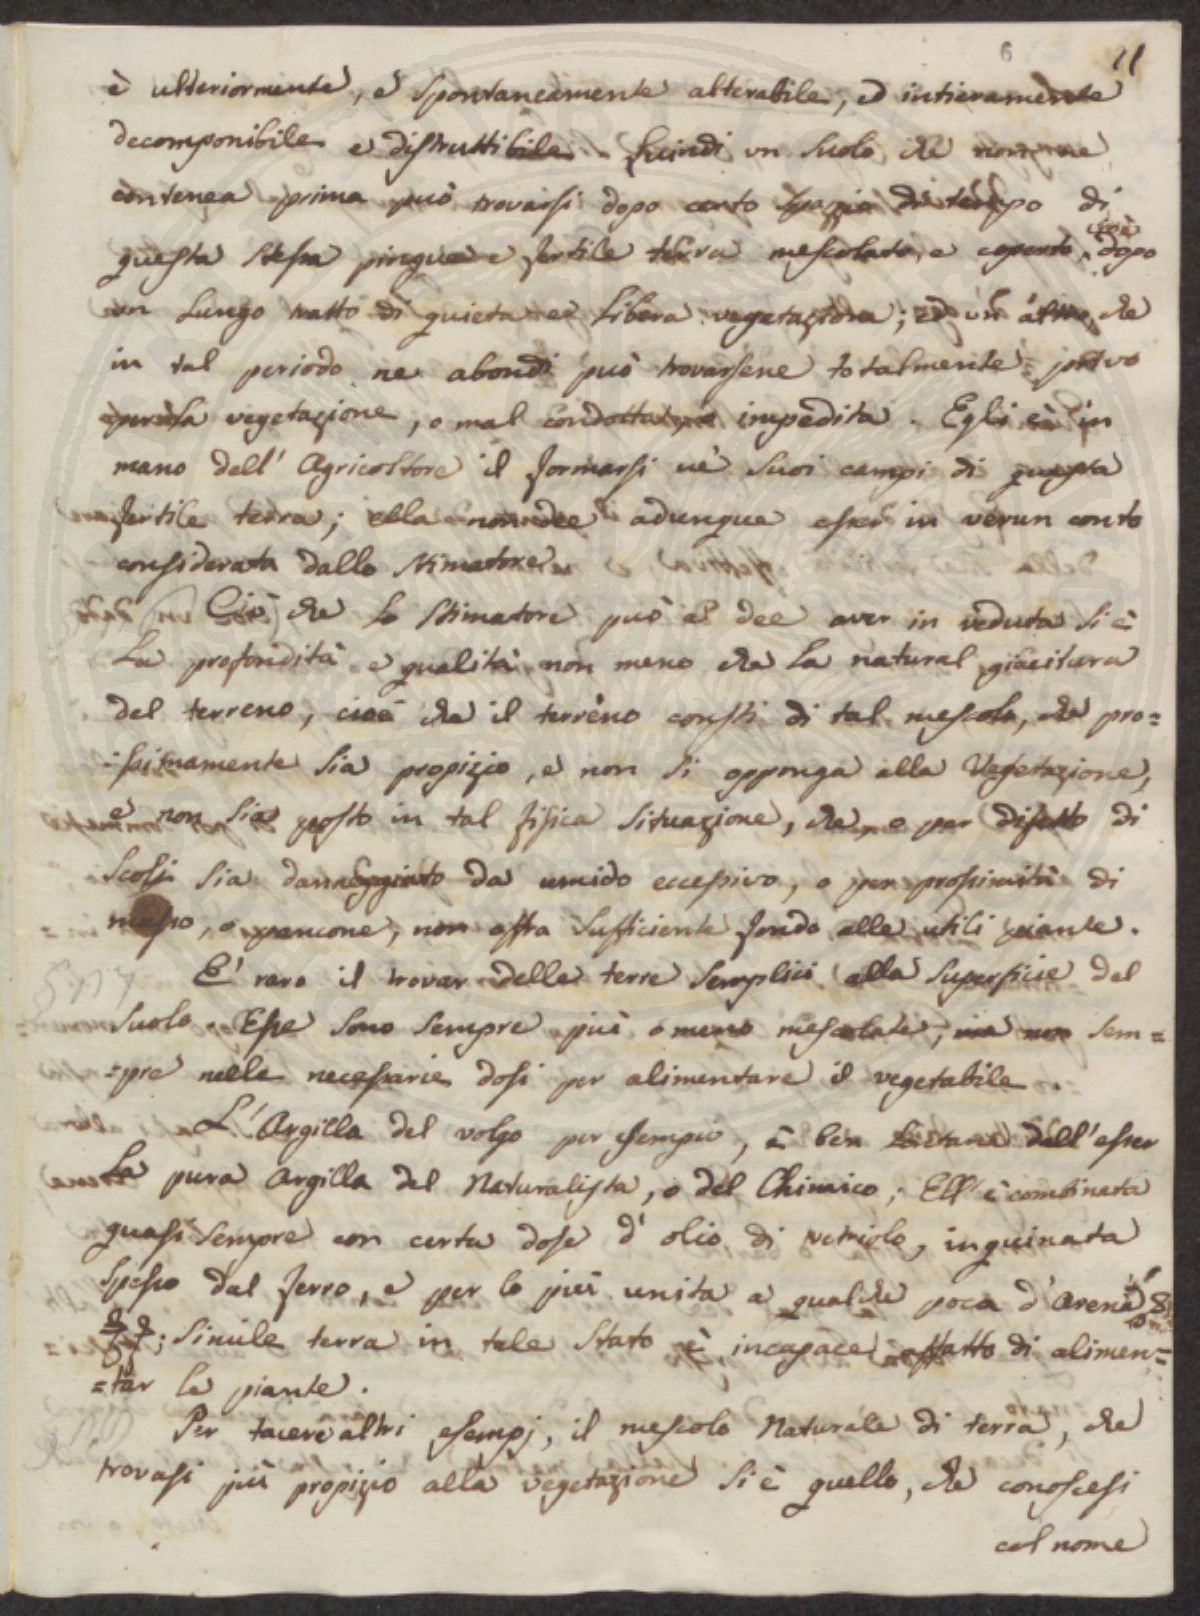 6 11
è ulteriormente, e spontaneamente alterabile, ed intieramente
decomponibile e distruttibile. Quindi un suolo che non ne
contenea prima può trovarsi dopo certo spazzio di tempo di
questa stessa pingue e fertile terra mescolato, e coperto, cioè dopo
un lungo tratto di quieta e libera vegetazione; ed un altro, che
in tal periodo ne abondi può trovarsene totalmente privo
vegetazione, o mal condotta, impedita. Egli è in
mano dell' Agricoltore il formarsi ne' suoi campi di questa
fertile terra; ella non dee adunque esser in verun conto
considerata dallo Stimatore.
Ciò che lo Stimatore può e dee aver in veduta si è
la profondità e qualità non meno che la natural giacitura
del terreno, cioè che il terreno consti di tal mescola, che pro=
=ssimamente sia propizio, e non si opponga alla Vegetazione,
e non sia posto in tal fisica situazione, che, o per difetto di
scoli sia danneggiato da umido eccessivo, o per prossimità di
masso, o pancone, non offra sufficiente fondo alle utili piante.
E' raro il trovar delle terre semplici alla superficie del
suolo. Esse sono sempre più o meno mescolate, ma non sem=
=pre nelle necessarie dosi per alimentare il vegetabile.
L'Argilla del volgo per esempio, è ben lontana dall'esser
la pura Argilla del Naturalista, o del Chimico; Ell'è combinata
quasi sempre con certa dose d' olio di vetriolo, inquinata
spesso dal ferro, e per lo più unita a qualche poca d'Arena
; Simile terra in tale stato è incapace affatto di alimen=
=tar le piante.
Per tacere altri esempj, il mescolo Naturale di terra, che
trovasi più propizio alla vegetazione si è quello, che conoscesi
col nome